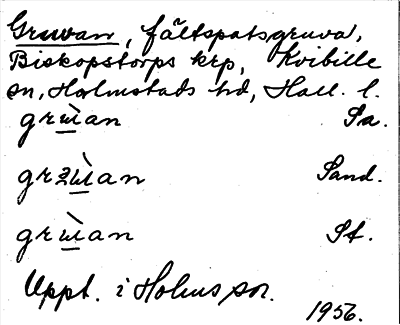 Gruvan, fältspatsgruva,
Biskopstorps krp, Kvibille
sn, Halmstads hd, Hall. l.
grɯ̀an Sa.
grɯ̀an Sand.
grɯ̀an St.
Uppt. i Holms sn.
1956.